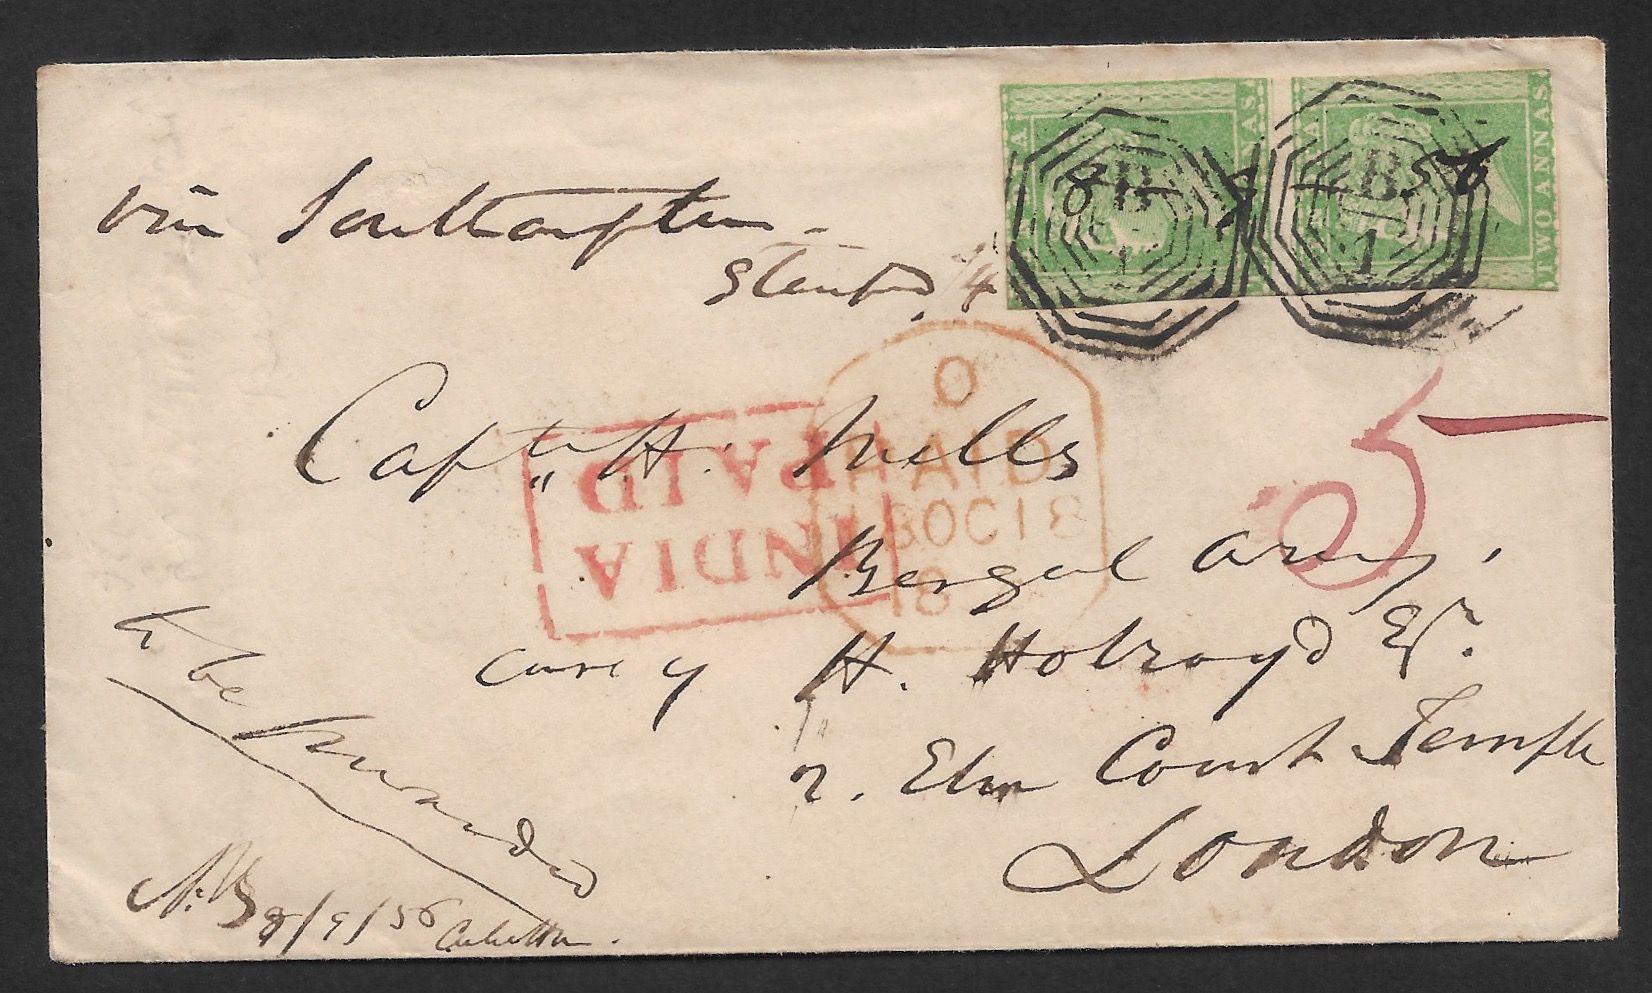 TWO ANNAS.
B
1
B
1
8/9/56
via Southampton
Stamped /4
O
PAID
18 OC 18
INDIA
PAID
5
Captn H. Mills
Bengal Army,
care of H. Holroyd Esqr.
2. Elm Court Temple
London
to be forwarded
8/9/56 Calcutta.